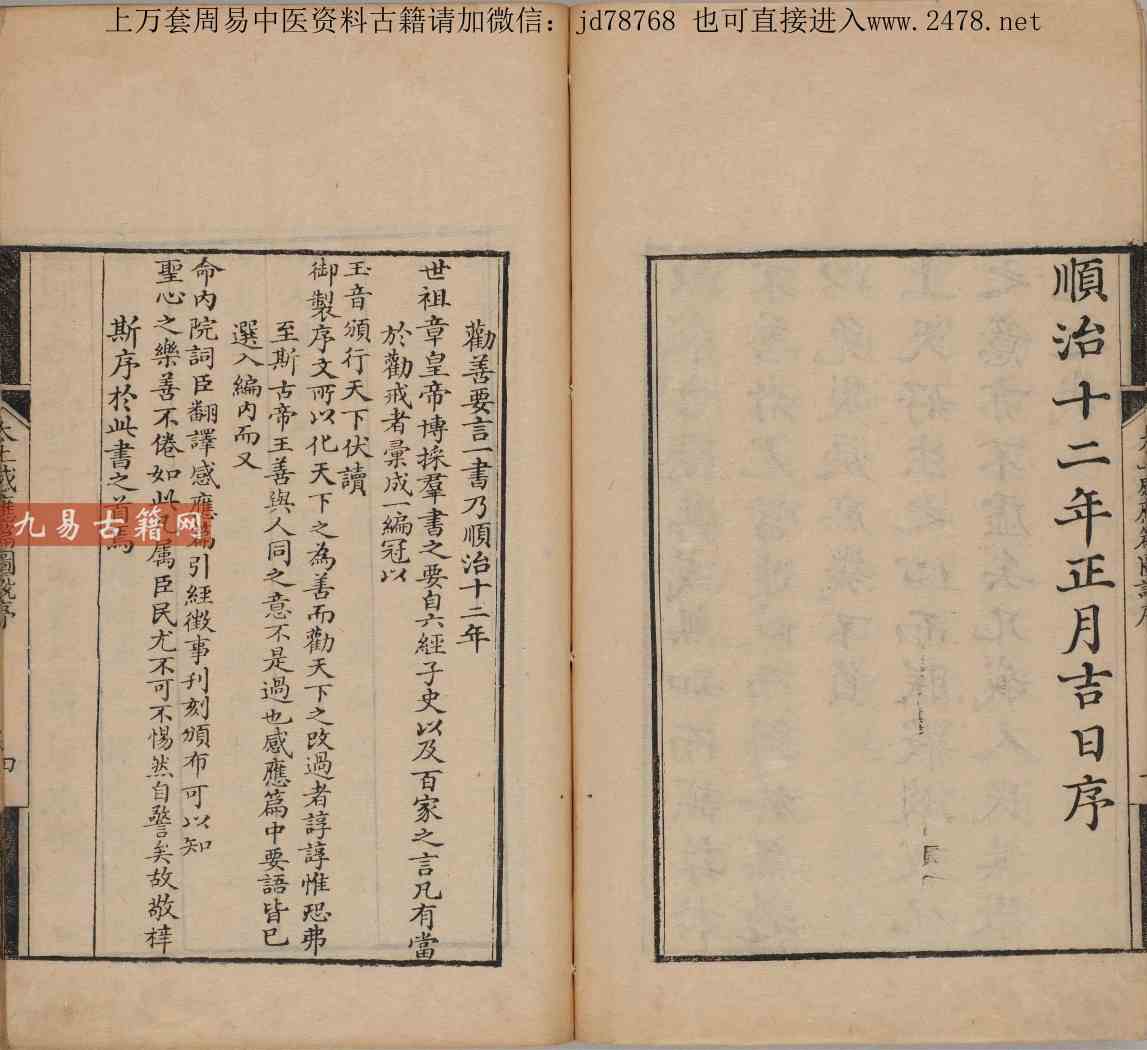 上万套周易中医资料古籍请加微信：jd78768 也可直接进入www.2478.net
順治十二年正月吉日序
勸善要言一書乃順治十二年
世祖章皇帝博採羣書之要自六經子史以及百家之言凡有當
於勸戒者彙成一編冠以
御製序文所以化天下之為善而勸天下之改過者諄諄惟恐弗
玉音頒行天下伏讀
至斯古帝王善與人同之意不是過也感應篇中要語皆已
選入編內而又
命內院詞臣翻譯感應篇引經徵事刊刻頒布可以知
聖心之樂善不倦如此凡属臣民尤不可不惕然自警矣故敬梓
斯序於此書之首焉
太上感應篇圖說序
九易古籍网